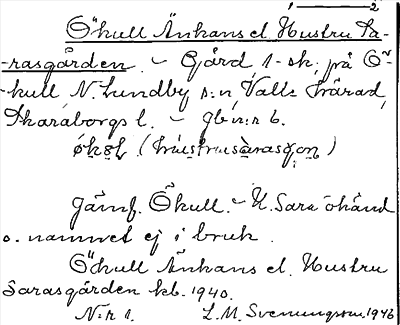 1 2
Ökull Änkans el. Hustru Sa-
-rasgården. - Gård 1 sk. på Ö-
-kull N. Lundby s:n, Valle härad,
Skaraborgs l. - Gb. n:r 6.
Jämf. Ökull. - H. Sara okänd
o. namnet ej i bruk.
Ökull Änkans el. Hustru
Sarasgården kb. 1940.
N:r 1. L. M. Svenungsson. 1946